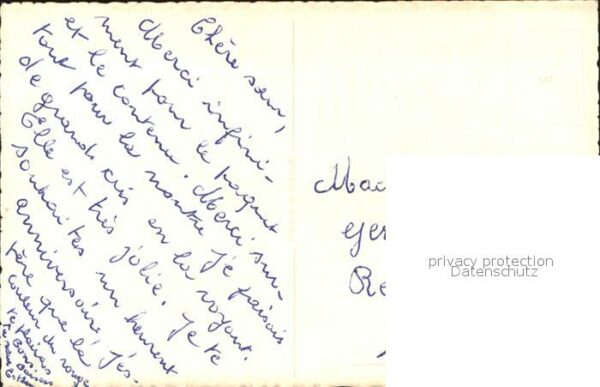 Chère sœur,
Merci infini-
ment pour le paquet
et le contenu. Merci sur-
tout pour la montre je faisais
de grands cris en la voyant.
Elle est très jolie. Je te
souhaites un heureux
anniversaire, j'es-
père que la
couleur du rouge
te plairas
Mad
Re
privacy protection
Datenschutz